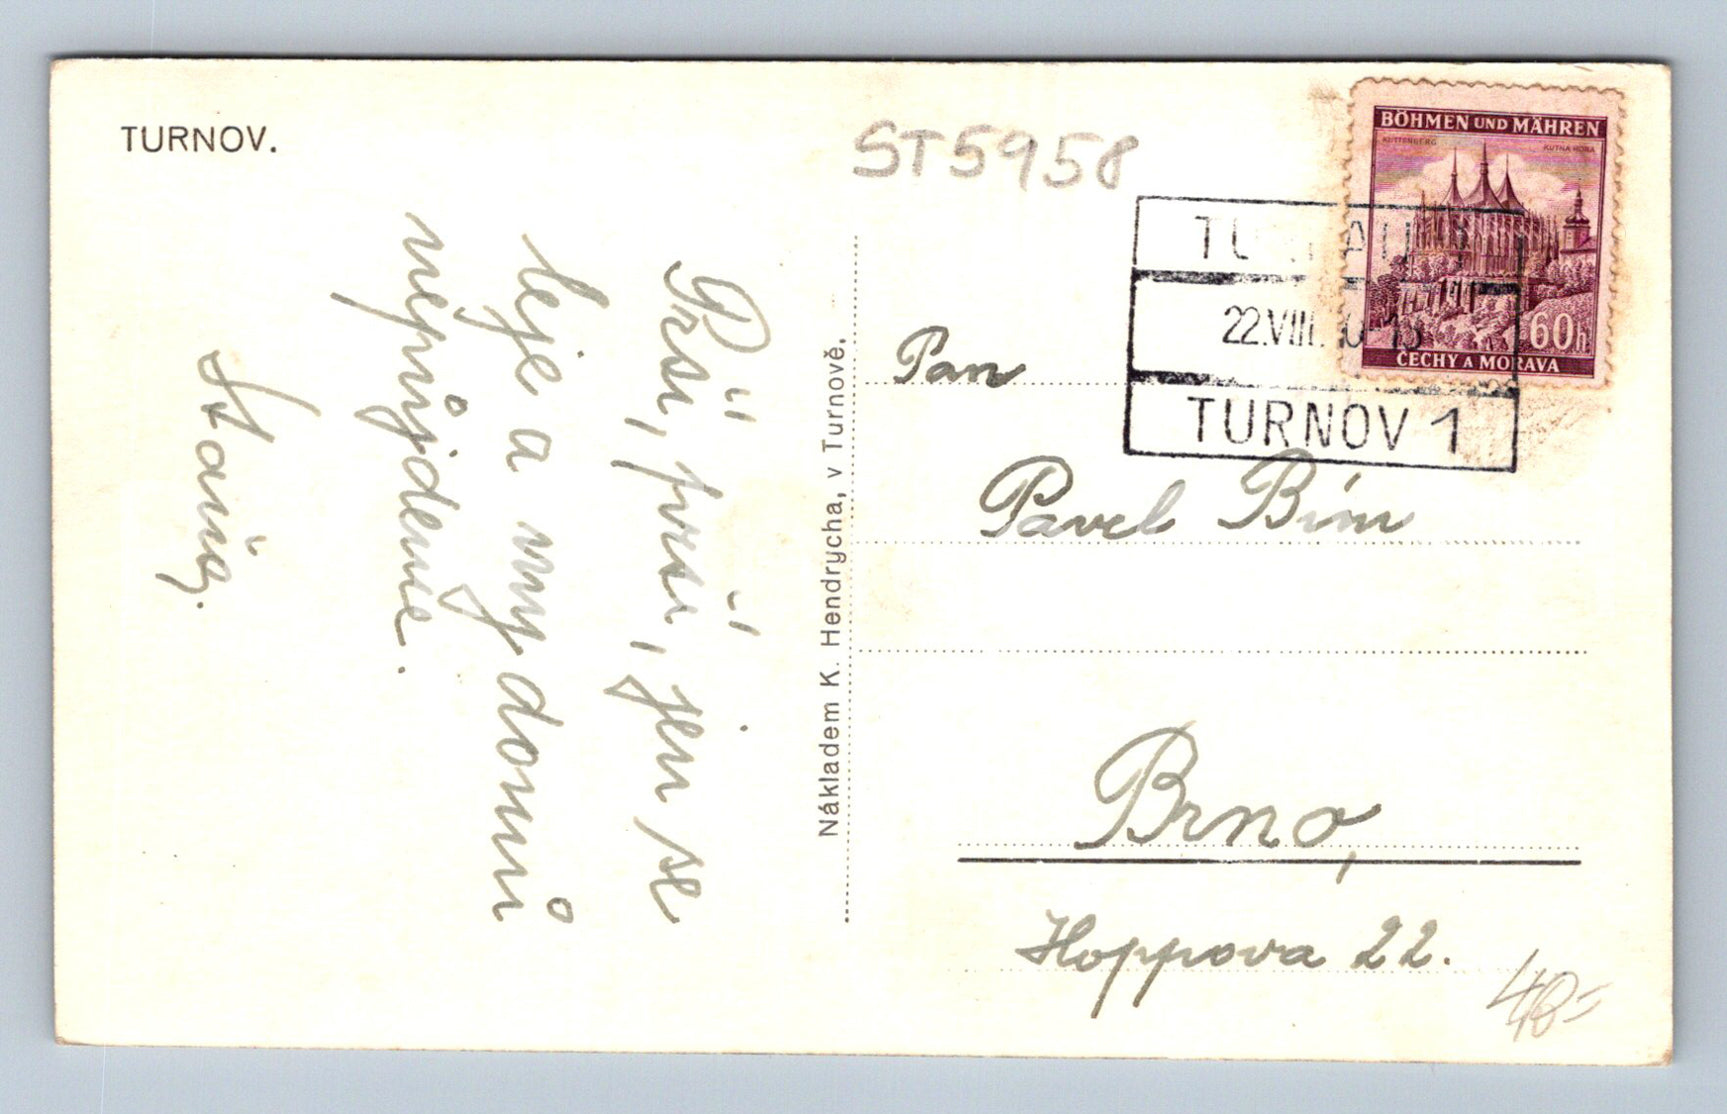 TURNOV.
ST5958
Prší, prší, jen se
leje a my domů
nepůjdeme.
Staňa.
Nákladem K. Hendrycha, v Turnově.
BÖHMEN UND MÄHREN
KUTTENBERG
KUTNÁ HORA
60h
ČECHY A MORAVA
22.VIII.
TURNOV 1
Pan
Pavel Bím
Brno,
Hoppova 22.
40=